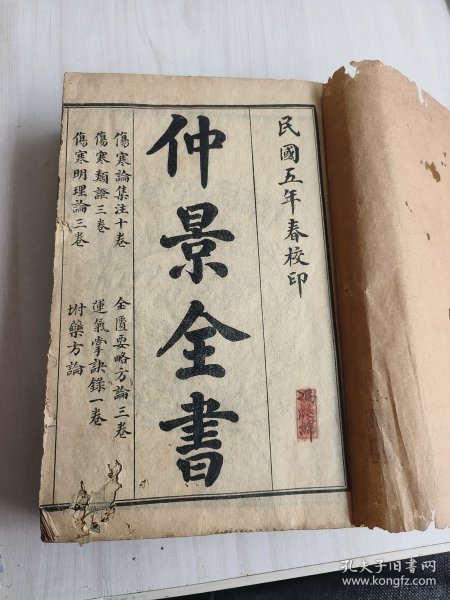 民國五年春校印
仲景全書
傷寒論集注十卷
金匱要略方論三卷
傷寒類證三卷
運氣掌訣錄一卷
傷寒明理論三卷
坿藥方論
孔夫子旧书网
www.kongfz.com